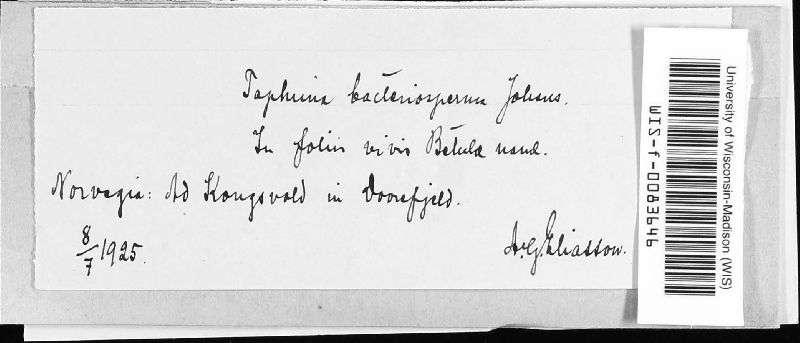 Taphrina bacteriosperma Johans.
In foliis vivis Betulæ nanæ.
Norvegia: Ad Kongsvold in Dovrefjeld.
8/7 1925.
A.G. Eliasson.
University of Wisconsin-Madison (WIS)
WIS-f-0083646